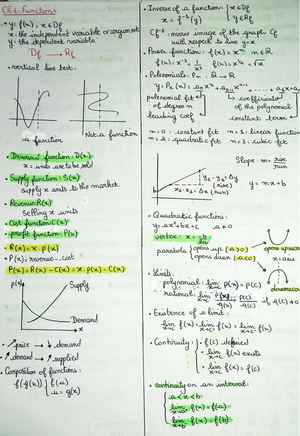 Ch 1: Functions
• y: f(x), x ∈ Df
x: the independent variable or argument
y: the dependent variable
Df → Rf
• vertical line test:
is a function
Not a function
• Demand function: D(x)
x: units are to be sold
• Supply function: S(x)
supply x units to the market
• Revenue: R(x)
Selling x units
• Cost function: C(x)
• profit function: P(x)
• R(x) = x. p(x)
• P(x): revenue - cost
P(x) = R(x) - C(x) = x. p(x) - C(x)
P(x)
Supply
Demand
x
• ↗ price → ↓ demand
• ↗ demand → ↗ supplied
• Composition of functions:
f(g(x)) { f(u)
u = g(x)
• Inverse of a function: { x ∈ Df
x = f⁻¹(y) y ∈ Rf
Cf⁻¹: mirror image of the graph Cf
with respect to line y = x
• Power function: f(x) = xⁿ n ∈ ℝ
f(x) = x⁻³ = 1/x³ f(x) = x^1/2 = √x
• Polynomials: Pn: ℝ → ℝ
y = Pn(x) = an xⁿ + an-1 xⁿ⁻¹ ... a1 x + a0
polynomial fct coefficients
of degree n of the polynomial
leading coef constant term
n = 0: constant fct n = 1: linear function
n = 2: quadratic fct n = 3: cubic fct
y2 - y1 = Δy
(rise)
x2 - x1 = Δx
(run)
Slope: m = rise/run
y = mx + b
• Quadratic functions:
y = ax² + bx + c a ≠ 0
vertex: x = -b/2a
parabola { opens up (a > 0)
opens down (a < 0)
opens upward
x = axis
downward
• Limits:
polynomial: lim x→c P(x) = P(c)
rational: lim x→c P(x)/q(x) = P(c)/q(c) if q(c) ≠ 0
• Existence of a limit:
lim x→c f(x) = lim x→c⁻ f(x) = lim x→c⁺ f(x)
• Continuity: { • f(c) defined
• lim x→c f(x) exists
• lim x→c f(x) = f(c)
• continuity on an interval:
a < x < b
lim x→a⁺ f(x) = f(a)
lim x→b⁻ f(x) = f(b)